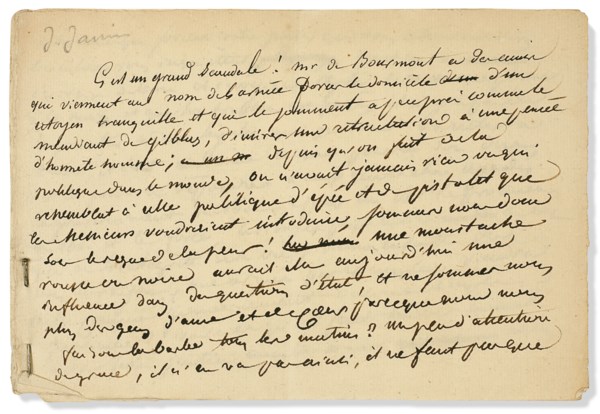 J. Janin
C'est un grand scandale ! mr de Bourmont a des amis
qui viennent au nom de l'armée forcer le domicile d'un
citoyen tranquille et qui le somment à peu près comme le
mendiant de gilblas, d'écrire une rétractation à une pensée
d'honnête homme ; depuis qu'on fait de la
politique dans le monde, on n'avait jamais rien vu qui
ressemblât à cette politique d'épée et de pistolet que
les Messieurs voudraient introduire sommes nous donc
sous le règne de la peur ! une moustache
rousse ou noire aurait elle aujourd'hui une
influence dans des questions d'état et ne sommes nous
plus des gens d'ame et de cœur parceque nous nous
faisons la barbe tous les matins ? un peu d'attention
de grace, il n'en va pas ainsi, il ne faut pas que